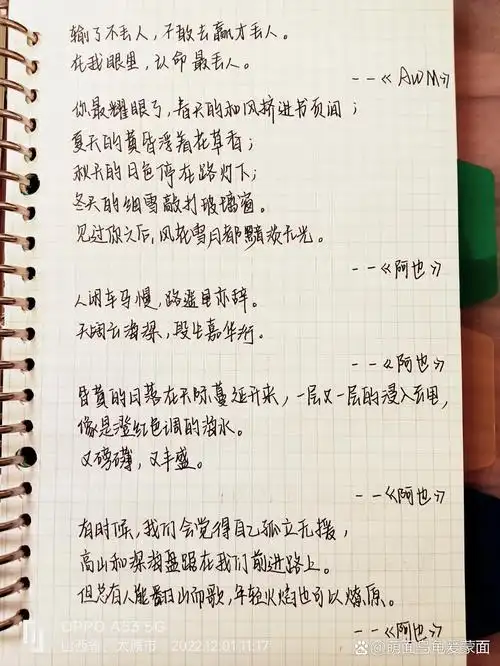 输了不丢人，不敢去赢才丢人。
在我眼里，认命最丢人。
--《AWM》
你最耀眼了，春天的和风挤进书页间；
夏天的黄昏浮着花草香；
秋天的日色停在路灯下；
冬天的细雪敲打玻璃窗。
见过你之后，风花雪月都黯淡无光。
--《阿也》
人间车马慢，路遥星亦辞。
天阔云海深，段生嘉华行。
--《阿也》
昏黄的日落在天际蔓延开来，一层又一层的浸入云里，
像是澄红色调的海水。
又磅礴，又丰盛。
--《阿也》
有时候，我们会觉得自己孤立无援，
高山和深海盘踞在我们前进路上。
但总有人能翻山而歌，年轻火焰也可以燎原。
--《阿也》
OPPO A53 5G
山西省，太原市 | 2022.12.01 11:17
@萌面乌龟爱蒙面